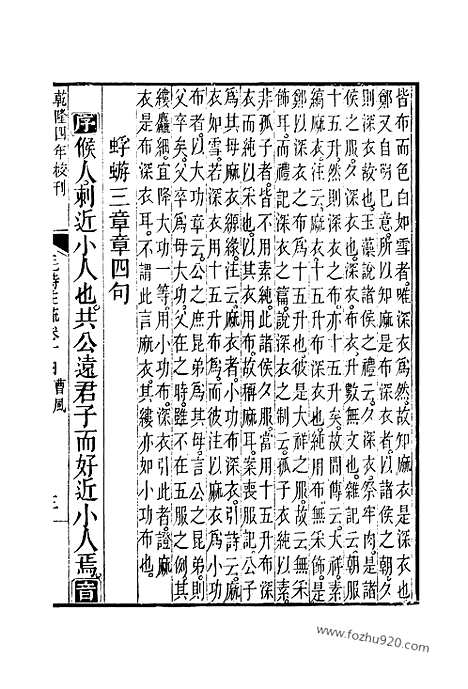 皆布而色白如雪者。唯深衣爲然。故知麻衣是深衣也。
鄭又自明己意所以知麻是布深衣者以諸侯之朝夕
則深衣故也。玉藻說諸侯之禮云。夕深衣。祭牢肉。是諸
侯之服。夕深衣也。深衣布衣。升數無文也。雜記云。朝服
十五升。然則深衣之布亦十五升矣。故間傳云。大祥素
縞麻衣。注云。麻衣。十五升布深衣也。純用布無采飾。是
鄭以深衣之布爲十五升也。彼是大祥之服。故云無采
飾耳。而禮記深衣之篇。說深衣之制云。孤子衣純以素。
非孤子者。皆不用素純。此諸侯夕服。當用十五升布深
衣而純以采也。以其衣用布。故稱麻耳。案喪服記。公子
爲其母麻衣縓緣。注云。麻衣者。小功布深衣。引詩云。麻
衣如雪。若深衣用十五升布爲。而彼注以麻衣爲小功
布者。以大功章云。公之庶昆弟爲其母。言公之昆弟。則
父卒矣。父卒爲母大功。父在之時。雖不在五服之例。其
縷麤細。宜降大功一等。用小功布。深衣引此者。證麻
衣是布深衣耳。不謂此言麻衣。其縷亦如小功布也。
蜉蝣三章章四句
序候人刺近小人也。共公遠君子而好近小人焉。音
乾隆四年校刊
曹風
三
www.fozhu920.com